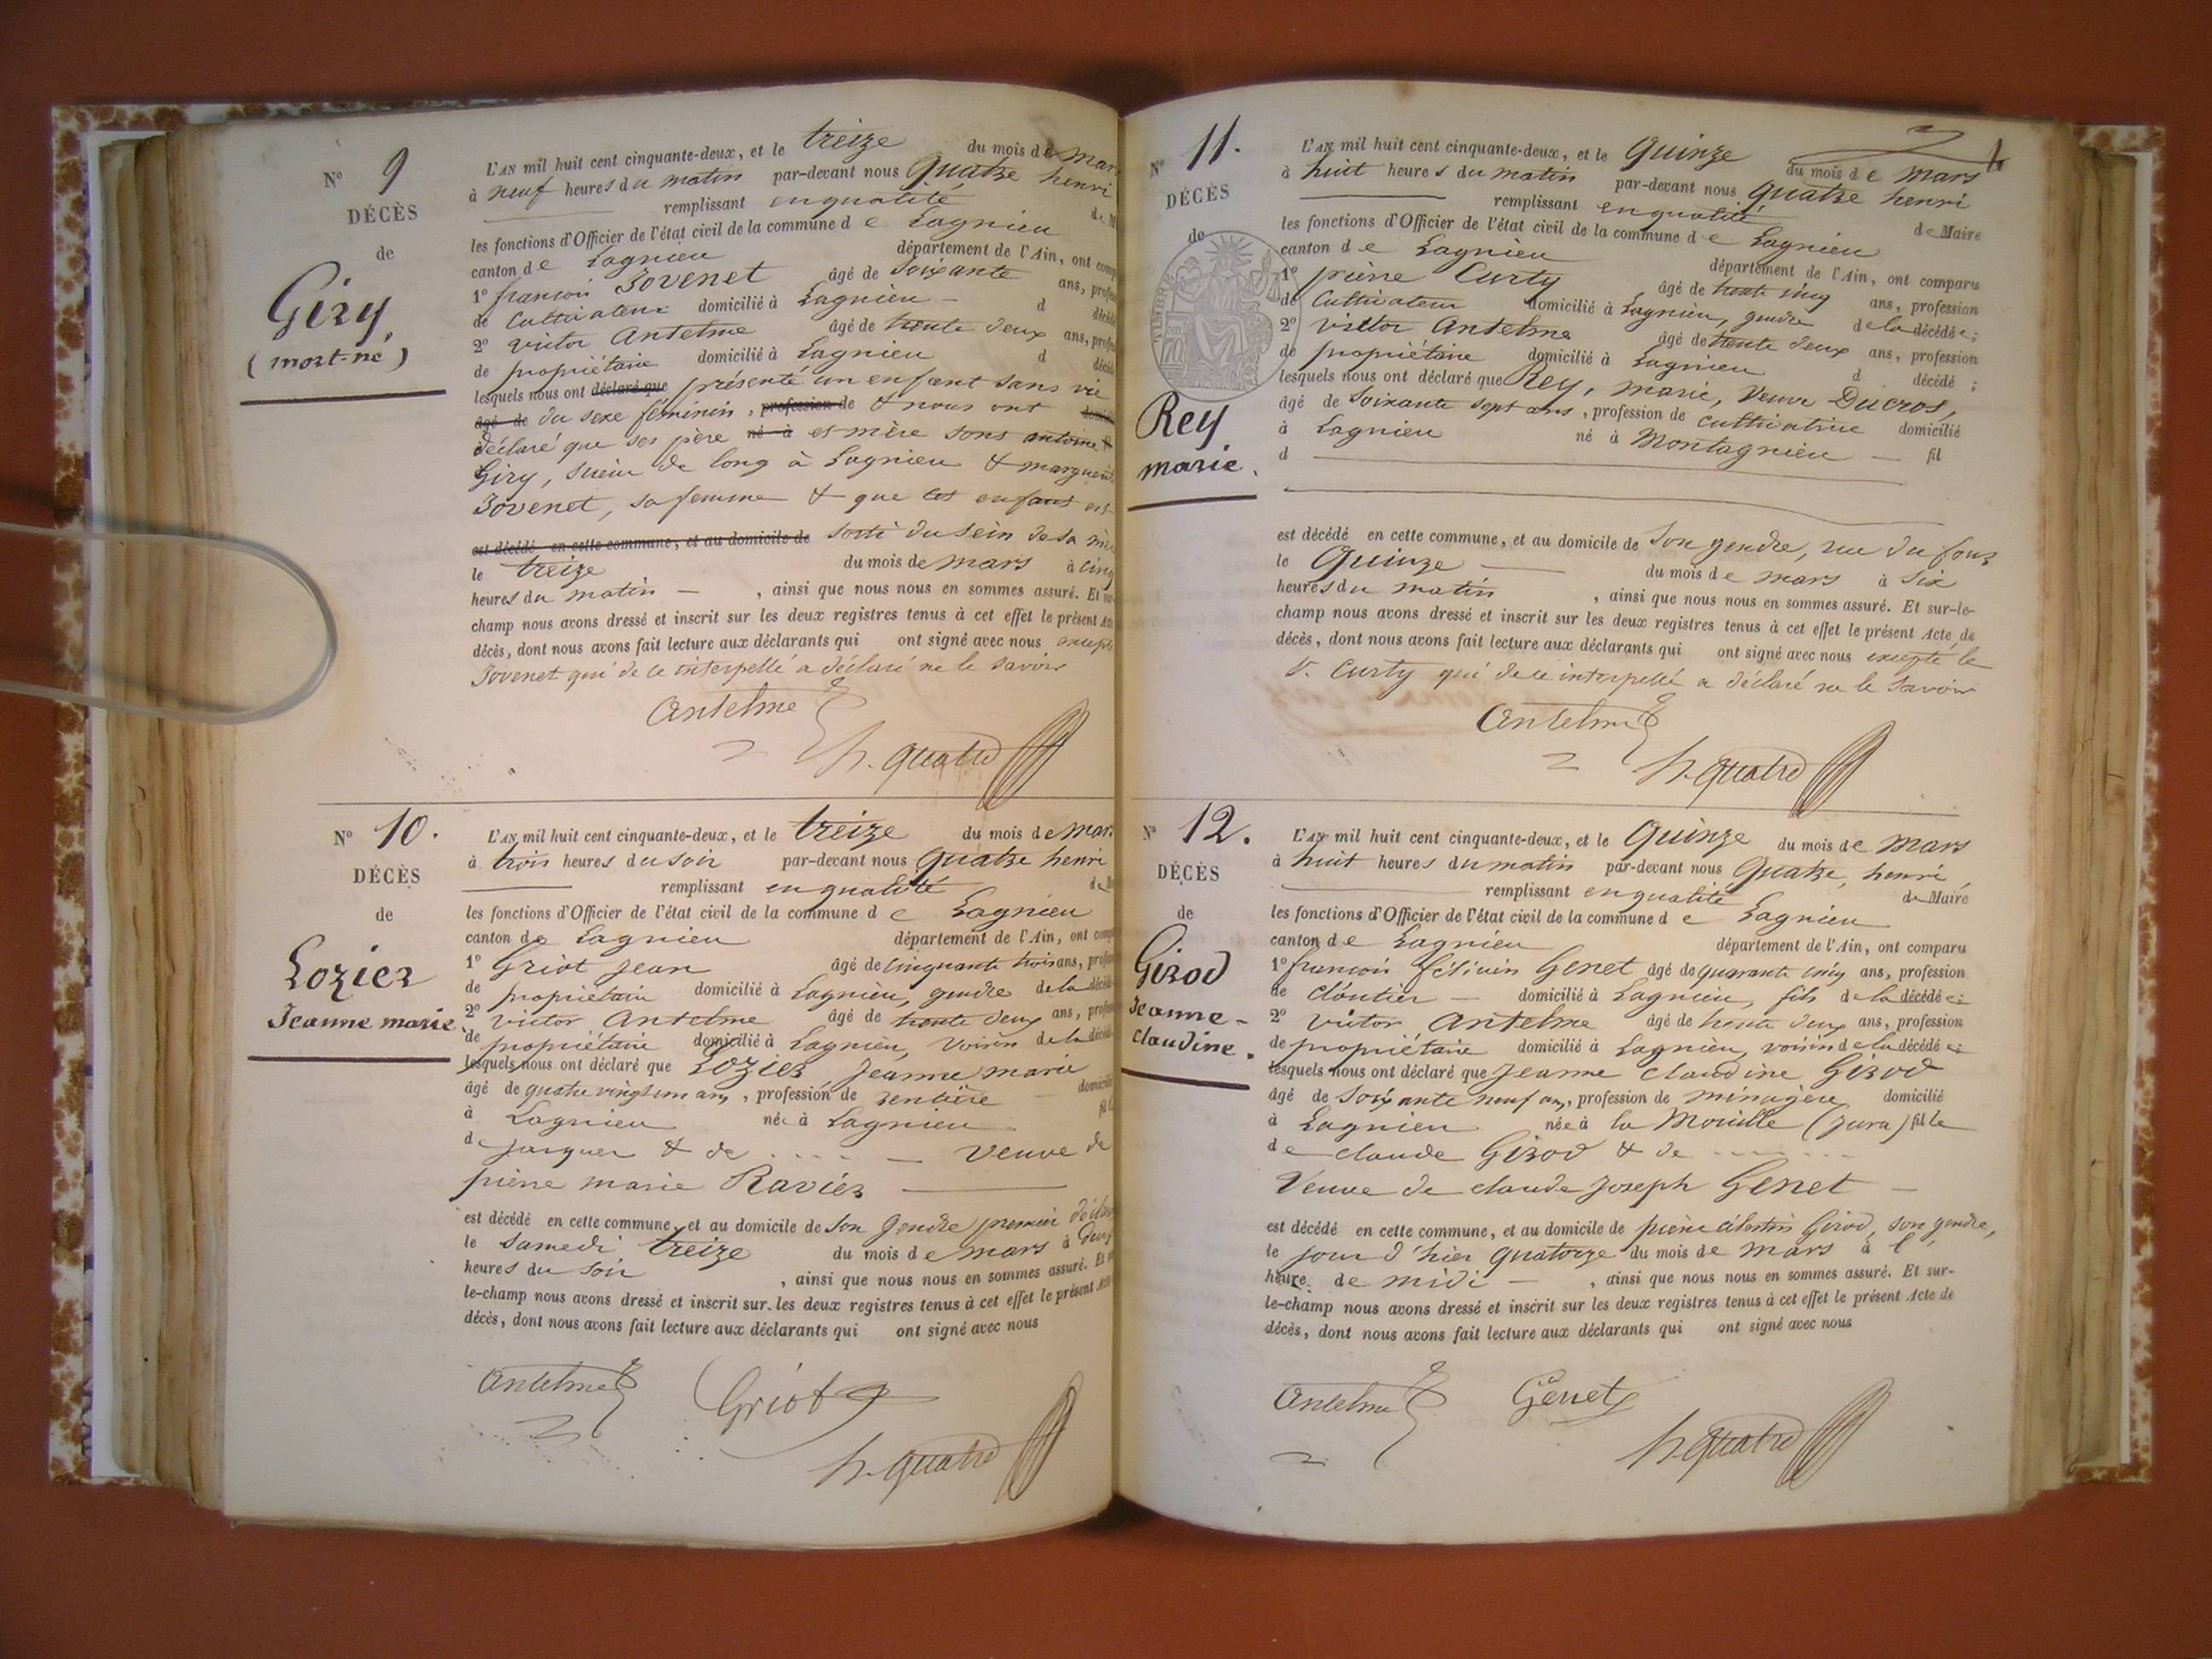 N° 9
DÉCÈS
de
Giry
(mort-né)
L'AN mil huit cent cinquante-deux, et le treize du mois de Mars
à neuf heures du matin par-devant nous Quatre henri
remplissant en qualité de
les fonctions d'Officier de l'état civil de la commune de Lagnieu
canton de Lagnieu département de l'Ain, ont
1° françois Jovenet âgé de soixante ans,
de Cultivateur domicilié à Lagnieu d
2° victor Antelme âgé de trente deux ans,
de propriétaire domicilié à Lagnieu d
lesquels nous ont déclaré que présenté un enfant sans vie
âgé de du sexe féminin, profession de & nous ont
déclaré que ses père né à et mère sont antoine
Giry, scieur de long à Lagnieu & marguerite
Jovenet, sa femme & que cet enfant est
est décédé en cette commune, et au domicile de sorti du sein de sa
le treize du mois de mars à cinq
heures du matin , ainsi que nous nous en sommes assuré. Et
champ nous avons dressé et inscrit sur les deux registres tenus à cet effet le présent
décès, dont nous avons fait lecture aux déclarants qui ont signé avec nous
Jovenet qui de ce interpellé a déclaré ne le savoir
Antelme
h. quatre
N° 10.
DÉCÈS
de
Lozier
Jeanne marie
L'AN mil huit cent cinquante-deux, et le treize du mois de Mars
à trois heures du soir par-devant nous Quatre henri
remplissant en qualité de
les fonctions d'Officier de l'état civil de la commune de Lagnieu
canton de Lagnieu département de l'Ain, ont
1° Griot Jean âgé de cinquante trois ans,
de propriétaire domicilié à Lagnieu, gendre de la
2° victor Antelme âgé de trente deux ans,
de propriétaire domicilié à Lagnieu, voisin de la
lesquels nous ont déclaré que Lozier Jeanne marie
âgé de quatre vingt un ans, profession de rentière
à Lagnieu née à Lagnieu
de jacques & de .... veuve de
pierre marie Ravier
est décédé en cette commune, et au domicile de son gendre premier
le samedi treize du mois de mars à
heures du soir , ainsi que nous nous en sommes assuré. Et
le-champ nous avons dressé et inscrit sur les deux registres tenus à cet effet le présent
décès, dont nous avons fait lecture aux déclarants qui ont signé avec nous
Antelme Griot
h. quatre
N° 11.
DÉCÈS
de
TIMBRE
Rey
marie.
L'AN mil huit cent cinquante-deux, et le Quinze du mois de mars
à huit heures du matin par-devant nous quatre henri
remplissant en qualité de Maire
les fonctions d'Officier de l'état civil de la commune de Lagnieu
canton de Lagnieu département de l'Ain, ont comparu
1° pierre Curty âgé de trente cinq ans, profession
de Cultivateur domicilié à Lagnieu, gendre de la décédée;
2° victor Antelme âgé de trente deux ans, profession
de propriétaire domicilié à Lagnieu d décédé;
lesquels nous ont déclaré que Rey, marie, Veuve Ducros,
âgé de soixante sept ans, profession de cultivatrice domicilié
à Lagnieu né à Montagnieu fil
d
est décédé en cette commune, et au domicile de son gendre, rue du four
le Quinze du mois de mars à six
heures du matin , ainsi que nous nous en sommes assuré. Et sur-le-
champ nous avons dressé et inscrit sur les deux registres tenus à cet effet le présent Acte de
décès, dont nous avons fait lecture aux déclarants qui ont signé avec nous excepté le
S. Curty qui de ce interpellé a déclaré ne le savoir
Antelme
h. quatre
N° 12.
DÉCÈS
de
Girod
Jeanne-
claudine.
L'AN mil huit cent cinquante-deux, et le Quinze du mois de mars
à huit heures du matin par-devant nous Quatre, henri
remplissant en qualité de Maire
les fonctions d'Officier de l'état civil de la commune de Lagnieu
canton de Lagnieu département de l'Ain, ont comparu
1° françois Genet âgé de quarante cinq ans, profession
de cloutier domicilié à Lagnieu, fils de la décédée;
2° victor Antelme âgé de trente deux ans, profession
de propriétaire domicilié à Lagnieu, voisin de la décédée;
lesquels nous ont déclaré que Jeanne claudine Girod
âgé de soixante neuf ans, profession de ménagère domicilié
à Lagnieu née à la Mouille (jura) fille
de claude Girod & de ......
Veuve de claude Joseph Genet
est décédé en cette commune, et au domicile de pierre célestin Girod, son gendre,
le jour d'hier quatorze du mois de mars à l'
heure de midi , ainsi que nous nous en sommes assuré. Et sur-
le-champ nous avons dressé et inscrit sur les deux registres tenus à cet effet le présent Acte de
décès, dont nous avons fait lecture aux déclarants qui ont signé avec nous
Antelme Genet
h. quatre